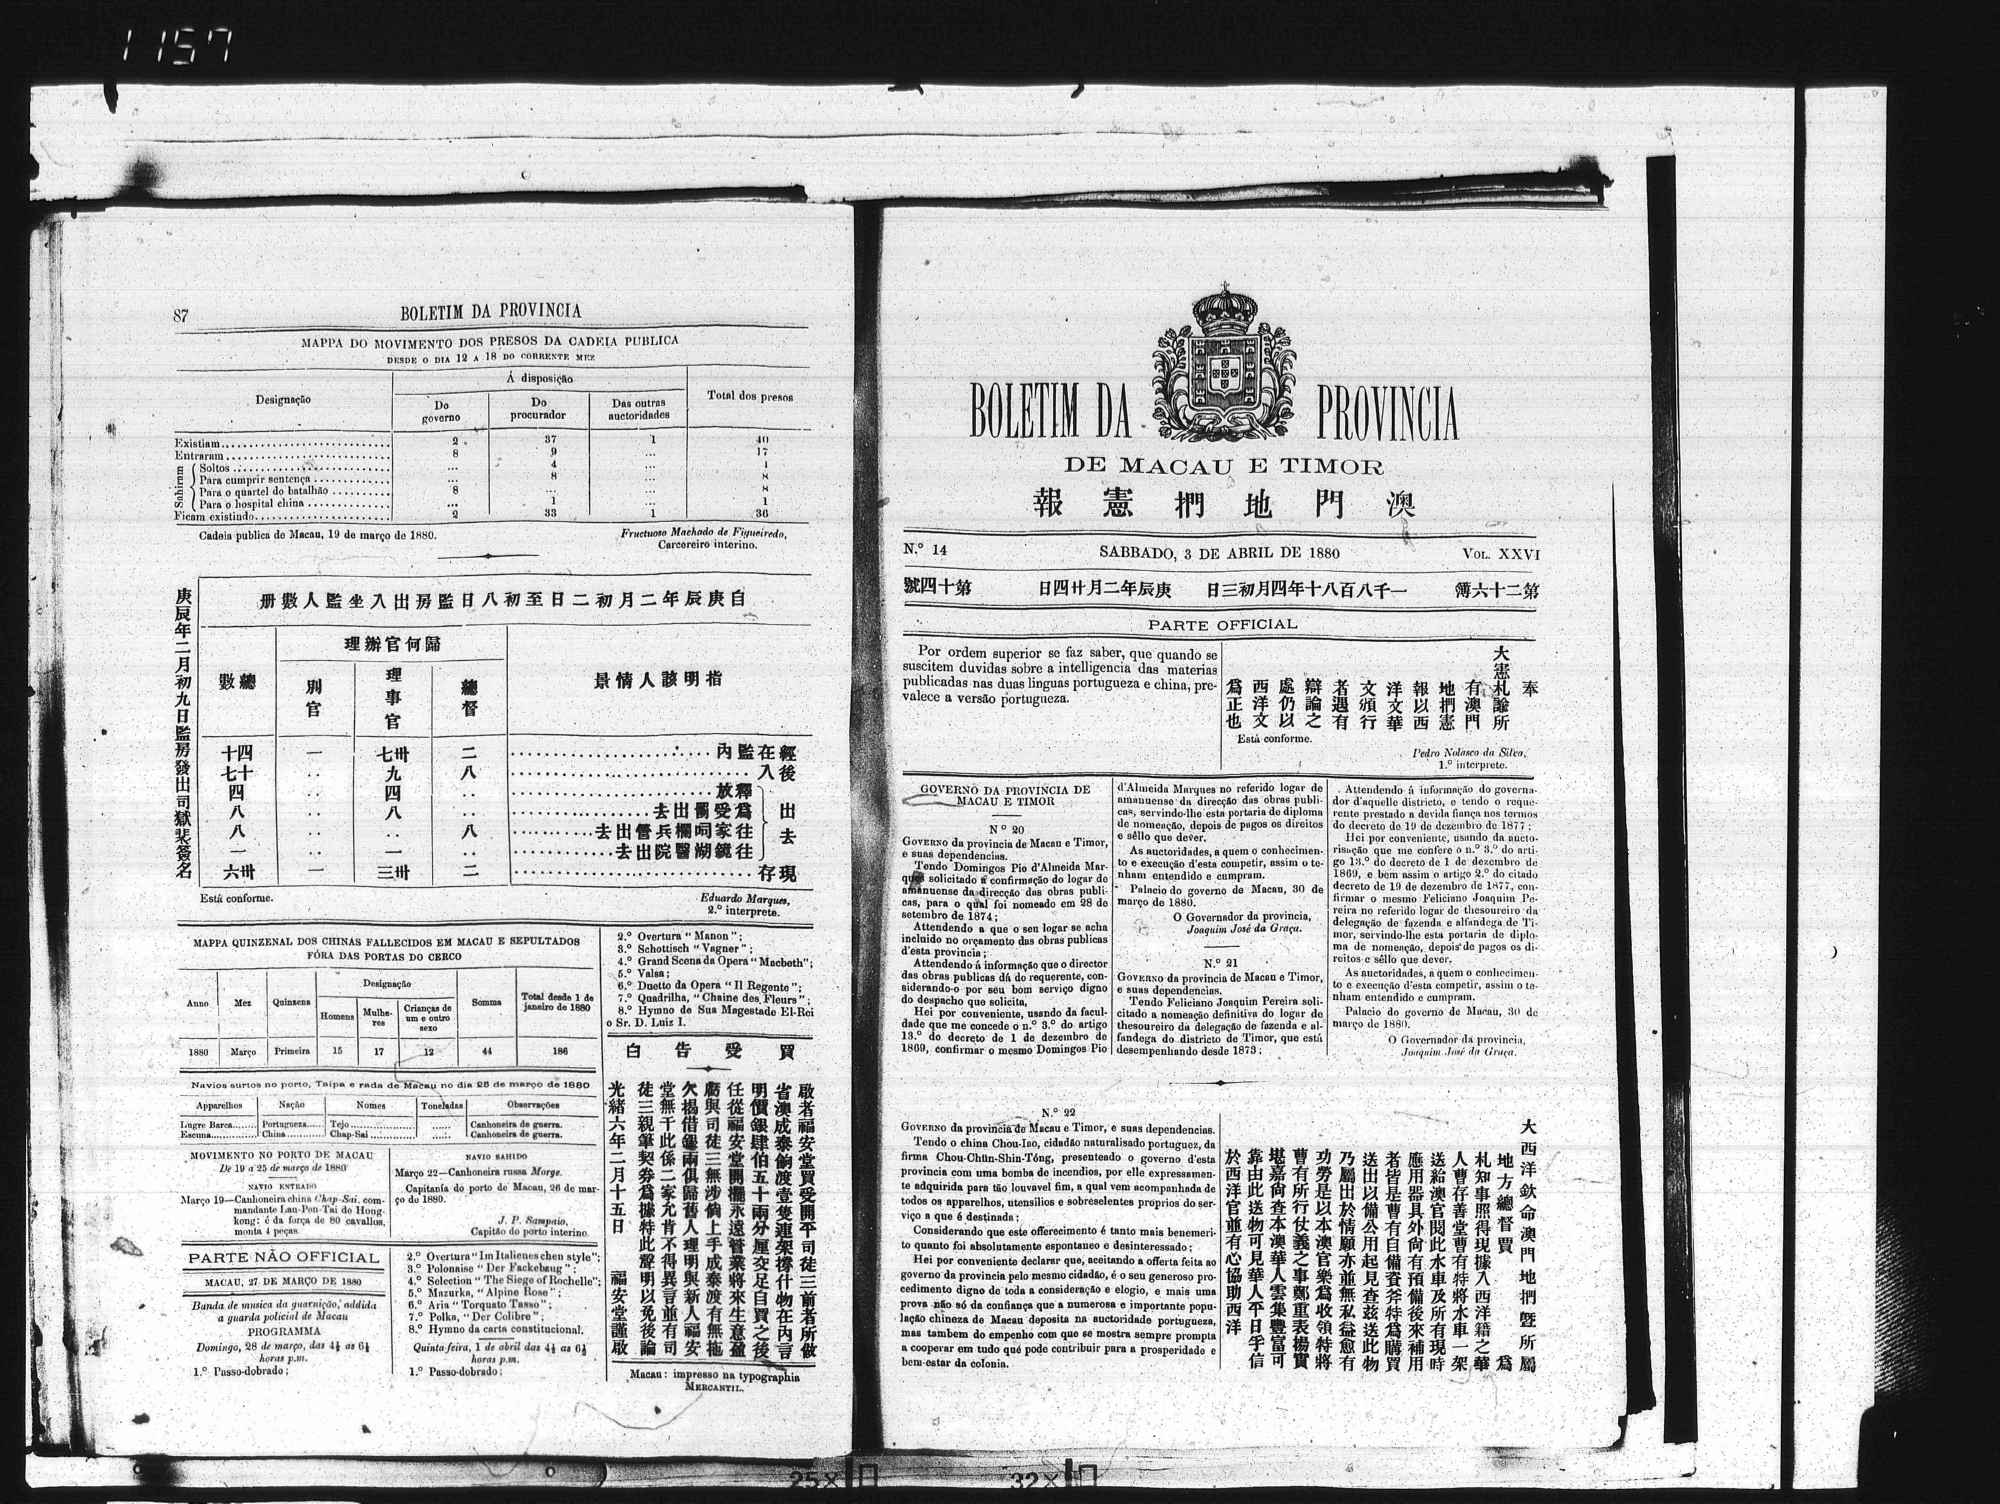 1157
87
BOLETIM DA PROVINCIA
MAPPA DO MOVIMENTO DOS PRESOS DA CADEIA PUBLICA
DESDE O DIA 12 A 18 DO CORRENTE MEZ
Designação
Á disposição
Do governo
Do procurador
Das outras auctoridades
Total dos presos
Existiam 2 37 1 40
Entraram 8 9 ... 17
Sahiram
Soltos ... 4 ... 4
Para cumprir sentença ... 8 ... 8
Para o quartel do batalhão 8 ... ... 8
Para o hospital china ... 1 ... 1
Ficam existindo 2 33 1 36
Cadeia publica de Macau, 19 de março de 1880.
Fructuoso Machado de Figueiredo,
Carcereiro interino.
自庚辰年二月初二日至初八日監房出入坐監人數册
指明該人情景
歸何官辦理
總督
理事官
別官
總數
經在監內 二 卅七 一 四十
後入 八 九 .. 十七
出去
釋放 .. 四 .. 四
為受罰出去 .. 八 .. 八
往家呞欄兵營出去 八 .. .. 八
往鏡湖醫院出去 .. 一 .. 一
現存 二 卅三 一 卅六
庚辰年二月初九日監房發出司獄斐簽名
Está conforme.
Eduardo Marques,
2.º interprete.
MAPPA QUINZENAL DOS CHINAS FALLECIDOS EM MACAU E SEPULTADOS
FÓRA DAS PORTAS DO CERCO
Anno
Mez
Quinzena
Designação
Homens
Mulheres
Crianças de um e outro sexo
Somma
Total desde 1 de janeiro de 1880
1880 Março Primeira 15 17 12 44 186
Navios surtos no porto, Taipa e rada de Macau no dia 26 de março de 1880
Apparelhos Nação Nomes Toneladas Observações
Lugre Barca Portugueza Tejo ...... Canhoneira de guerra.
Escuna China Chap-Sai ...... Canhoneira de guerra.
MOVIMENTO NO PORTO DE MACAU
De 19 a 25 de março de 1880
NAVIO ENTRADO
Março 19—Canhoneira china Chap-Sai, com-
mandante Lau-Pon-Tai de Hong-
kong: é da força de 80 cavallos,
monta 4 peças.
NAVIO SAHIDO
Março 22—Canhoneira russa Morge.
Capitania do porto de Macau, 26 de mar-
ço de 1880.
J. P. Sampaio,
Capitão do porto interino.
PARTE NÃO OFFICIAL
MACAU, 27 DE MARÇO DE 1880
Banda de musica da guarnição, addida
a guarda policial de Macau
PROGRAMMA
Domingo, 28 de março, das 4½ as 6½
horas p.m.
1.º Passo-dobrado;
2.º Overtura "Im Italienes chen style";
3.º Polonaise "Der Fackebzug";
4.º Selection "The Siege of Rochelle";
5.º Mazurka, "Alpine Rose";
6.º Aria "Torquato Tasso";
7.º Polka, "Der Colibre";
8.º Hymno da carta constitucional.
Quinta-feira, 1 de abril das 4½ as 6½
horas p.m.
1.º Passo-dobrado;
2.º Overtura "Manon";
3.º Schottisch "Vagner";
4.º Grand Scena da Opera "Macbeth";
5.º Valsa;
6.º Duetto da Opera "Il Regente";
7.º Quadrilha, "Chaine des Fleurs";
8.º Hymno de Sua Magestade El-Rei
o Sr. D. Luiz I.
買受告白
啟者福安堂買受開平司徒三前者所做
省澳成泰餉渡壹隻連架撐什物在內言
明價銀肆伯五十兩分厘交足自買之後
任從福安堂開擺永遠管業將來生意盈
虧與司徒三無涉倘上手成泰渡有無拖
欠揭借銀兩俱歸舊人理明與新人福安
堂無干此係二家允肯不得異言並有司
徒三親筆契券為據特此聲明以免後論
光緒六年二月十五日 福安堂謹啟
Macau: impresso na typographia
MERCANTIL.
BOLETIM DA PROVINCIA
DE MACAU E TIMOR
報憲捫地門澳
N.º 14
SABBADO, 3 DE ABRIL DE 1880
VOL. XXVI
號四十第 日四廿月二年辰庚 日三初月四年十八百八千一 簿六十二第
PARTE OFFICIAL
Por ordem superior se faz saber, que quando se
suscitem duvidas sobre a intelligencia das materias
publicadas nas duas linguas portugueza e china, pre-
valece a versão portugueza.
奉
大憲札諭所
有澳門
地捫憲
報以西
洋文華
文頒行
者遇有
辯論之
處仍以
西洋文
為正也
Está conforme.
Pedro Nolasco da Silva,
1.º interprete.
GOVERNO DA PROVINCIA DE
MACAU E TIMOR
N.º 20
GOVERNO da provincia de Macau e Timor,
e suas dependencias.
Tendo Domingos Pio d'Almeida Mar-
ques solicitado a confirmação do logar de
amanuense da direcção das obras publi-
cas, para o qual foi nomeado em 28 de
setembro de 1874;
Attendendo a que o seu logar se acha
incluido no orçamento das obras publicas
d'esta provincia;
Attendendo á informação que o director
das obras publicas dá do requerente, con-
siderando-o por seu bom serviço digno
do despacho que solicita,
Hei por conveniente, usando da facul-
dade que me concede o n.º 3.º do artigo
13.º do decreto de 1 de dezembro de
1869, confirmar o mesmo Domingos Pio
d'Almeida Marques no referido logar de
amanuense da direcção das obras publi-
cas, servindo-lhe esta portaria de diploma
de nomeação, depois de pagos os direitos
e sêllo que dever.
As auctoridades, a quem o conhecimen-
to e execução d'esta competir, assim o te-
nham entendido e cumpram.
Palacio do governo de Macau, 30 de
março de 1880.
O Governador da provincia,
Joaquim José da Graça.
N.º 21
GOVERNO da provincia de Macau e Timor,
e suas dependencias.
Tendo Feliciano Joaquim Pereira soli-
citado a nomeação definitiva do logar de
thesoureiro da delegação de fazenda e al-
fandega do districto de Timor, que está
desempenhando desde 1873;
Attendendo á informação do governa-
dor d'aquelle districto, e tendo o reque-
rente prestado a devida fiança nos termos
do decreto de 19 de dezembro de 1877;
Hei por conveniente, usando da aucto-
risação que me confere o n.º 3.º do arti-
go 13.º do decreto de 1 de dezembro de
1869, e bem assim o artigo 2.º do citado
decreto de 19 de dezembro de 1877, con-
firmar o mesmo Feliciano Joaquim Pe-
reira no referido logar de thesoureiro da
delegação de fazenda e alfandega de Ti-
mor, servindo-lhe esta portaria de diplo-
ma de nomeação, depois de pagos os di-
reitos e sêllo que dever.
As auctoridades, a quem o conhecimen-
to e execução d'esta competir, assim o te-
nham entendido e cumpram.
Palacio do governo de Macau, 30 de
março de 1880.
O Governador da provincia,
Joaquim José da Graça.
N.º 22
GOVERNO da provincia de Macau e Timor, e suas dependencias.
Tendo o china Chou-Iao, cidadão naturalisado portuguez, da
firma Chou-Chün-Shin-Tóng, presenteado o governo d'esta
provincia com uma bomba de incendios, por elle expressamen-
te adquirida para tão louvavel fim, a qual vem acompanhada de
todos os apparelhos, utensilios e sobreselentes proprios do ser-
viço a que é destinada;
Considerando que este offerecimento é tanto mais benemeri-
to quanto foi absolutamente espontaneo e desinteressado;
Hei por conveniente declarar que, aceitando a offerta feita ao
governo da provincia pelo mesmo cidadão, é o seu generoso pro-
cedimento digno de toda a consideração e elogio, e mais uma
prova não só da confiança que a numerosa e importante popu-
lação chineza de Macau deposita na auctoridade portugueza,
mas tambem do empenho com que se mostra sempre prompta
a cooperar em tudo qué pode contribuir para a prosperidade e
bem-estar da colonia.
大西洋欽命澳門地捫曁所屬
地方總督賈 為
札知事照得現據入西洋籍之華
人曹存善堂曹有特將水車一架
送給澳官閱此水車及所有現時
應用器具外尙有預備後來補用
者皆是曹有自備資斧特為購買
送出以備公用起見查茲送此物
乃屬出於情願亦並無私益愈有
功勞是以本澳官樂為收領特將
曹有所行仗義之事鄭重表揚實
堪嘉尙查本澳華人雲集豐富可
靠由此送物可見華人平日孚信
於西洋官並有心協助西洋
25× 32×